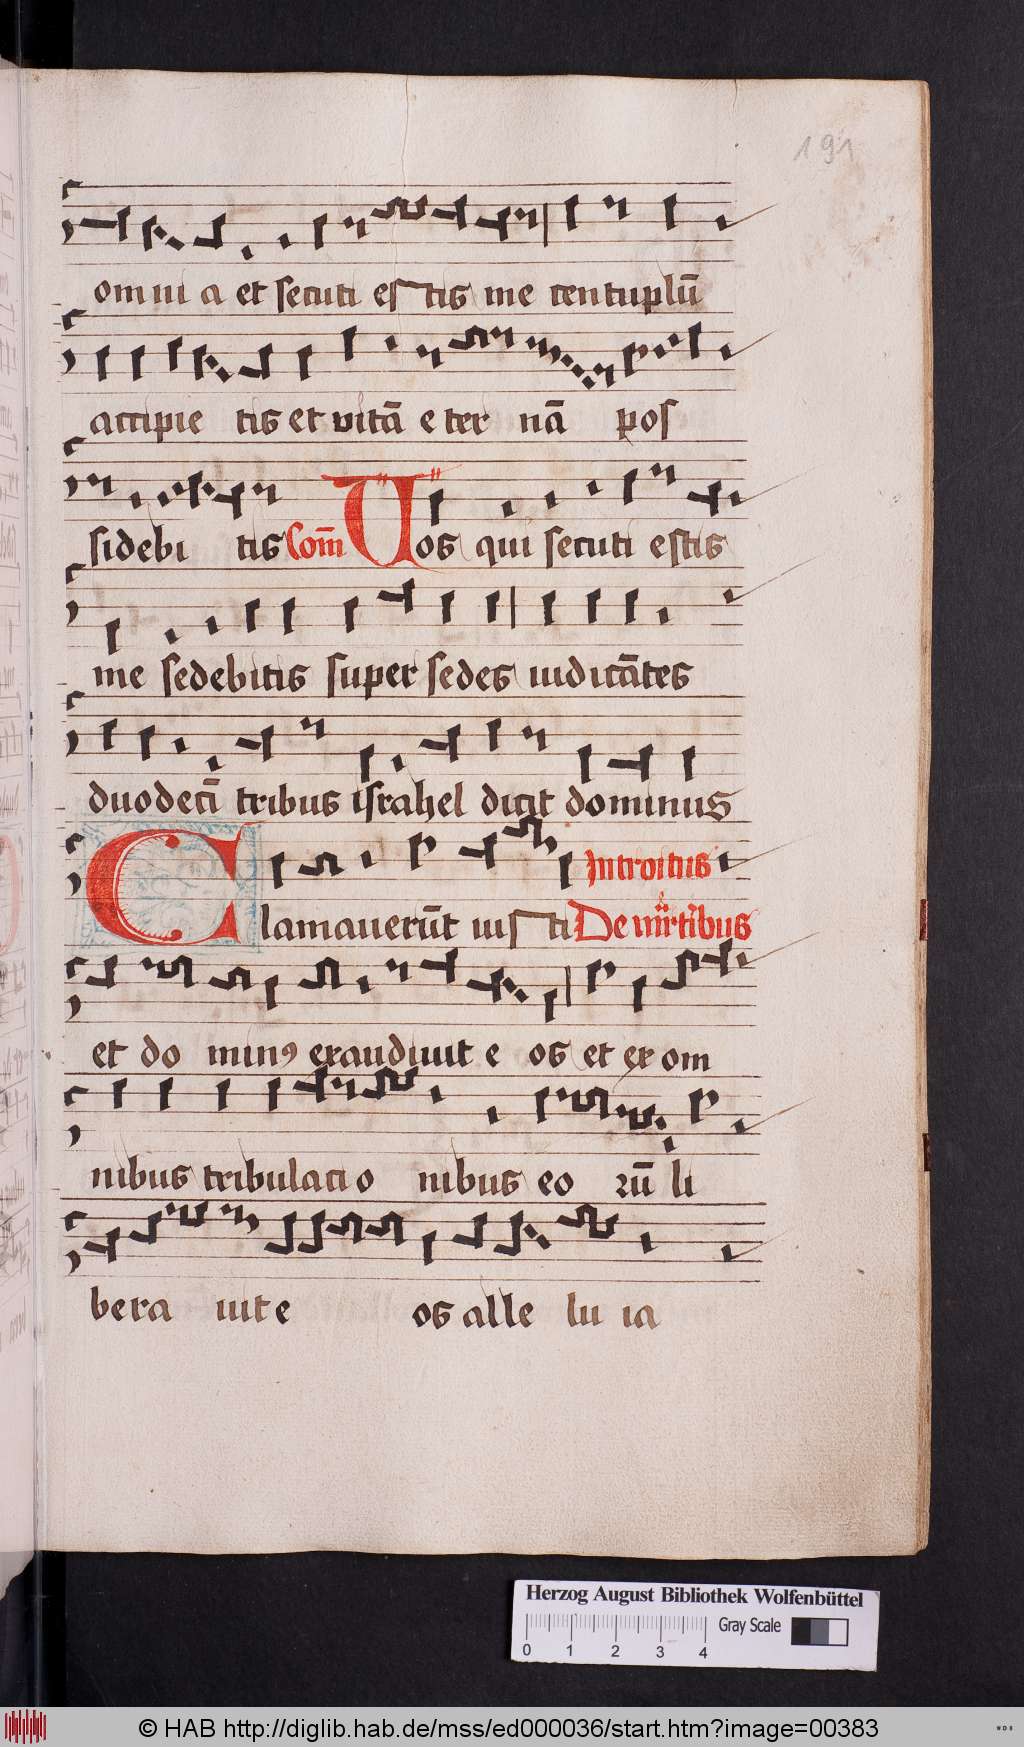 191
omni a et secuti es tis me centuplū
accipie tis et vitā e ter nā pos
sidebi tis Com̄ Uos qui secuti estis
me sedebitis super sedes iudicātes
duodecī tribus israhel dicit dominus
Introitus
Clamauerūt ius ti De mr̄tibus
et do minꝰ exaudiuit e os et ex om
nibus tribulacio nibus eo ꝛū li
bera iuit e os alle lu ia
Herzog August Bibliothek Wolfenbüttel
Gray Scale
0 1 2 3 4
© HAB http://diglib.hab.de/mss/ed000036/start.htm?image=00383